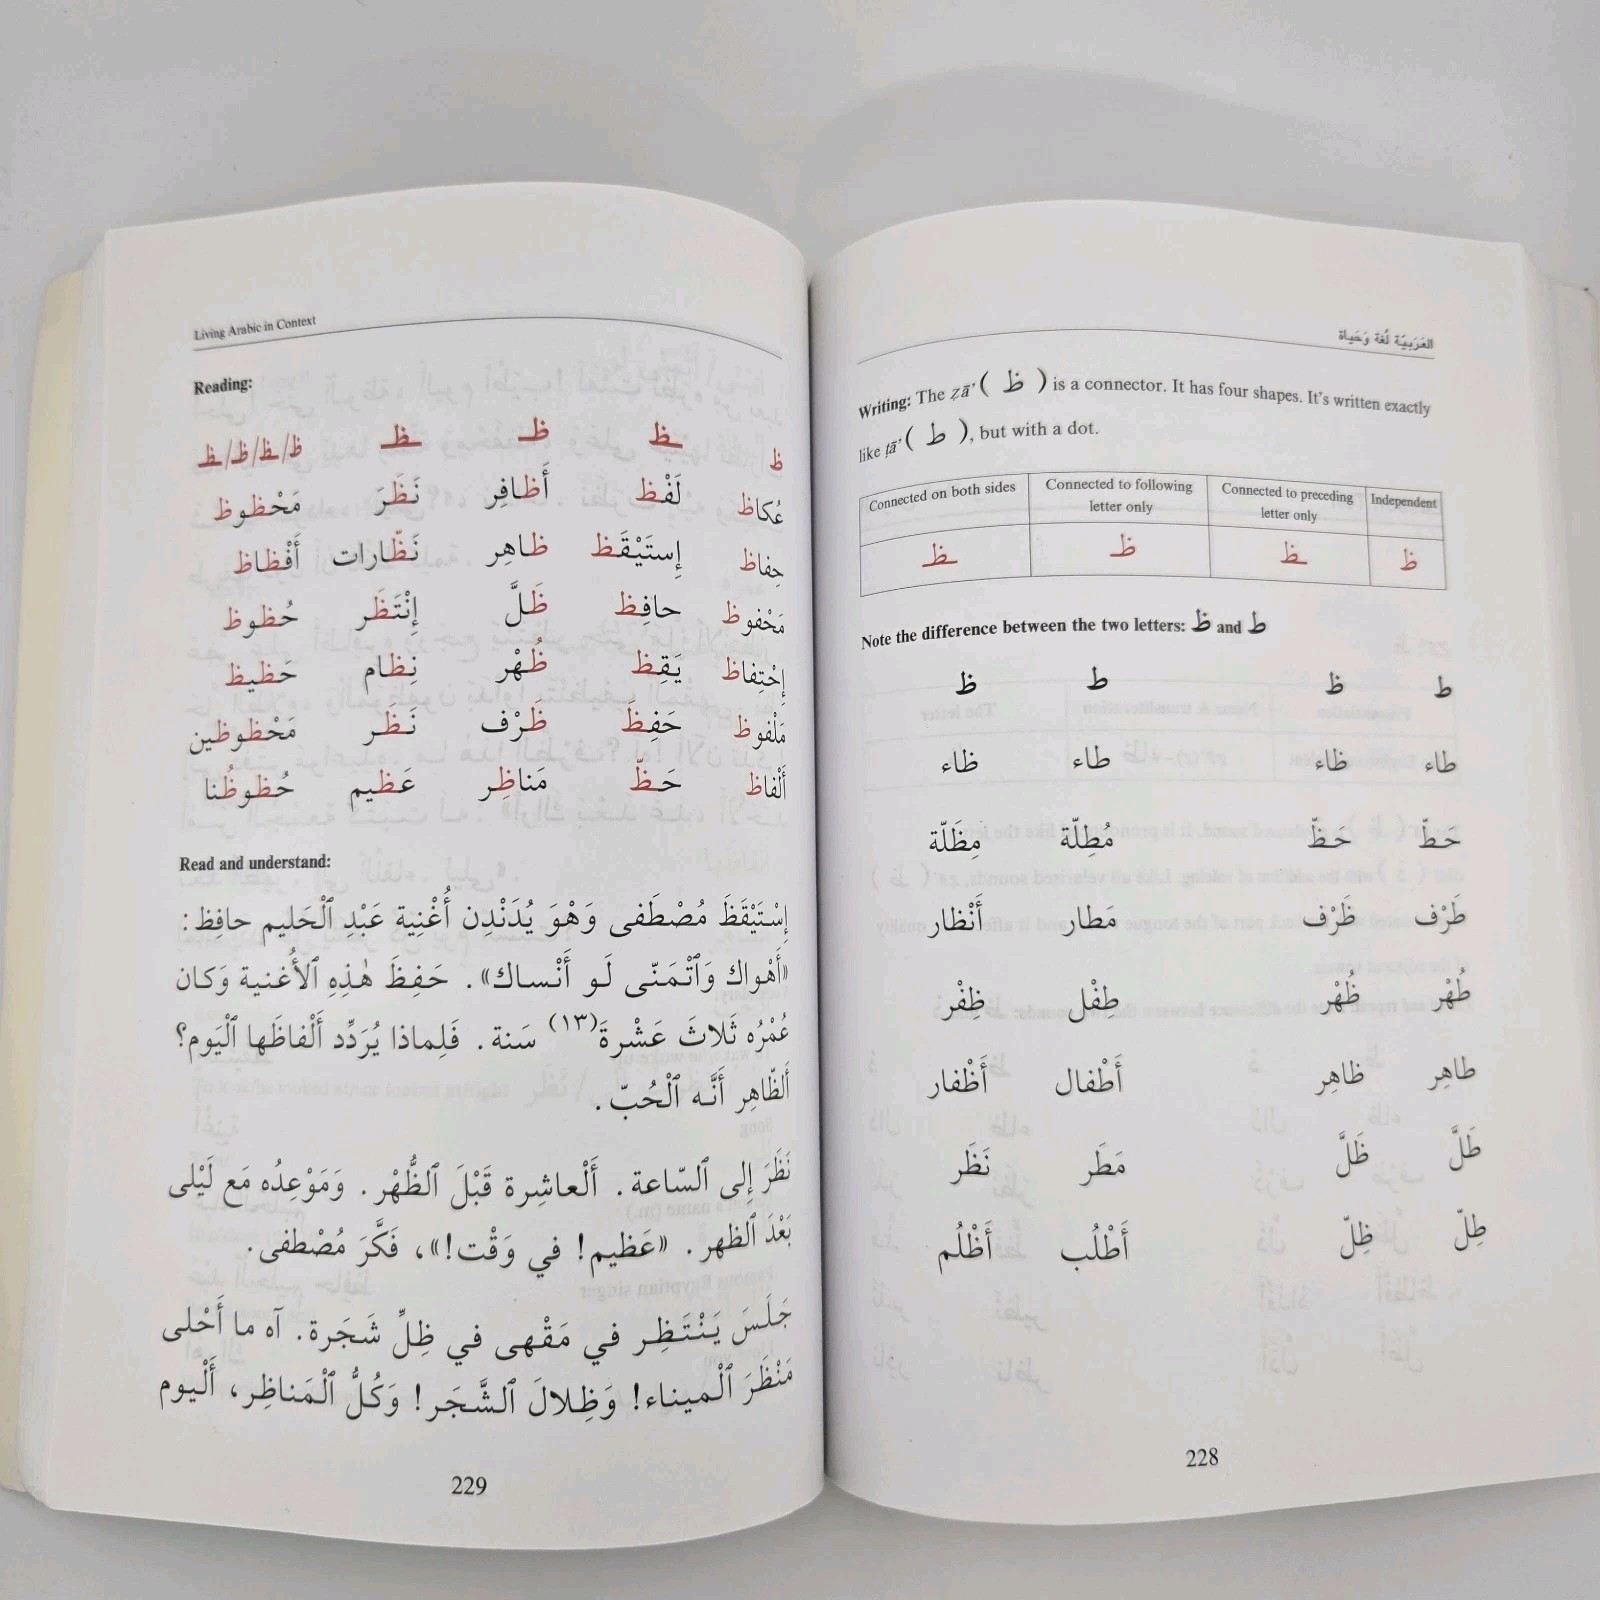 العَرَبِيّة لُغة وَحَياة
Writing: The ẓā’ ( ظ ) is a connector. It has four shapes. It's written exactly
like ṭā’ ( ط ), but with a dot.
Connected on both sides Connected to following letter only Connected to preceding letter only Independent
ـظـ ظـ ـظ ظ
Note the difference between the two letters: ظ and ط
ط ظ ط ظ
طاء ظاء طاء ظاء
حَطّ حَظّ مُطِلّة مِظَلّة
طَرْف ظَرْف مَطار أَنْظار
طُهْر ظُهْر طِفْل ظِفْر
طاهِر ظاهِر أَطْفال أَظْفار
طَلَّ ظَلَّ مَطَر نَظَر
طِلّ ظِلّ أَطْلُب أَظْلُم
228
Living Arabic in Context
Reading:
ظ ـظ ظـ ـظـ ظ/ظـ/ـظـ/ـظ
عُكاظ لَفْظ أَظافِر نَظَرَ مَحْظوظ
حِفاظ إِستَيْقَظ ظاهِر نَظّارات أَفْظاظ
مَحْفوظ حافِظ ظَلَّ إِنْتَظَر حُظوظ
إحْتِفاظ يَقِظ ظُهْر نِظام حَظيظ
مَلْفوظ حَفِظَ ظَرْف نَظَر مَحْظوظين
أَلْفاظ حَظّ مَناظِر عَظيم حُظوظُنا
Read and understand:
إِسْتَيْقَظَ مُصْطَفى وَهْوَ يُدَنْدِن أُغْنِية عَبْدِ ٱلْحَليم حافِظ:
«أَهْواك وَٱتْمَنّى لَو أَنْساك». حَفِظَ هٰذِهِ ٱلأُغنية وَكان
عُمْرُه ثَلاثَ عَشْرة (١٣) سَنة. فَلِماذا يُرَدِّد أَلْفاظَها ٱلْيَوم؟
اَلظّاهِر أَنَّه ٱلْحُبّ.
نَظَرَ إِلى ٱلسّاعة. أَلْعاشِرة قَبْلَ ٱلظُّهْر. وَمَوْعِدُه مَع لَيْلى
بَعْدَ ٱلظهر. «عَظيم! في وَقْت!»، فَكَّرَ مُصْطَفى.
جَلَسَ يَنْتَظِر في مَقْهى في ظِلِّ شَجَرة. آه ما أَحْلى
مَنْظَرَ ٱلْميناء! وَظِلالَ ٱلشَّجَر! وَكُلُّ ٱلْمَناظِر، أَلْيوم
229